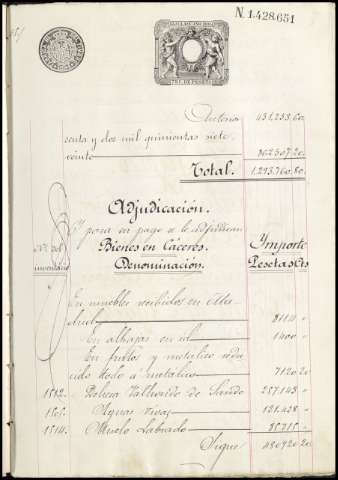 N. 1.428.651
Anterior 431.253.60
senta y dos mil quinientas siete
veinte 862507.20
Total. 1.293.760.80
Adjudicación.
Y para en pago se le adjudican
Bienes en Cáceres. Importe
Nº del
inventario Denominación. Pesetas Cts
En muebles recibidos en Ma-
drid 8114 "
En alhajas en id. 1400 "
En frutos y metálico redu-
cido todo á metálico 7120 20
1512. Dehesa Valhondo de Sando 257143 "
1505. Aguas Vivas 121428 "
1514. Muelo Labrado 85715 "
Sigue 480920 20